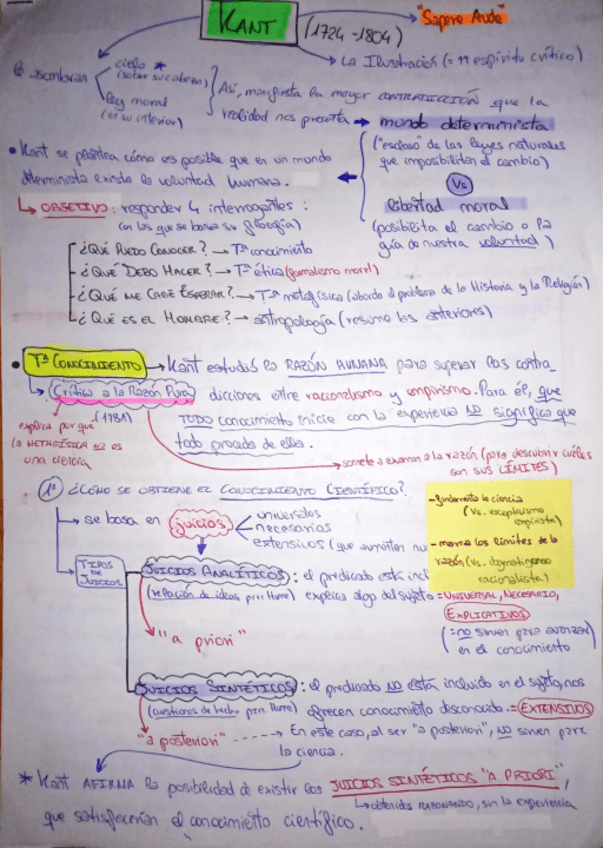 KANT
(1724-1804)
"Sapere Aude"
La Ilustración (= ↑↑ espíritu crítico)
asombran
cielo *
(sobre su cabeza)
ley moral
(en su interior)
Así, manifiesta la mayor CONTRADICCIÓN que la
realidad nos presenta → mundo determinista
("esclavo" de las leyes naturales
que imposibilitan el cambio)
Vs
libertad moral
(posibilita el cambio o la
guía de nuestra voluntad)
• Kant se plantea cómo es posible que en un mundo
determinista exista la voluntad humana.
OBJETIVO: responder 4 interrogantes:
(en los que se basa su filosofía)
- ¿QUÉ PUEDO CONOCER? → Tª conocimiento
- ¿QUÉ DEBO HACER? → Tª ética (formalismo moral)
- ¿QUÉ ME CABE ESPERAR? → Tª metafísica (aborda el problema de la Historia y la Religión)
- ¿QUÉ ES EL HOMBRE? → antropología (resume las anteriores)
• Tª CONOCIMIENTO → Kant estudió la RAZÓN HUMANA para superar las contra-
Crítica a la Razón Pura
(1781)
dicciones entre racionalismo y empirismo. Para él, que
TODO conocimiento inicie con la experiencia NO significa que
todo proceda de ella.
explica por qué
la METAFÍSICA NO es
una ciencia
somete a examen a la razón (para descubrir cuáles
son sus LÍMITES)
1º ¿CÓMO SE OBTIENE EL CONOCIMIENTO CIENTÍFICO?
→ se basa en juicios
universales
necesarios
extensivos (que aumenten nu
- fundamenta la ciencia
(Vs. escepticismo
empirista)
- marca los límites de la
razón (Vs. dogmatismo
racionalista)
TIPOS
DE
JUICIOS
JUICIOS ANALÍTICOS: el predicado está incl
(relación de ideas para Hume) explica algo del sujeto = UNIVERSAL, NECESARIO,
EXPLICATIVOS
(= no sirven para avanzar
en el conocimiento
"a priori"
JUICIOS SINTÉTICOS: el predicado NO está incluido en el sujeto, nos
(cuestiones de hecho para Hume) ofrecen conocimiento desconocido. = EXTENSIVOS
"a posteriori" → En este caso, al ser "a posteriori", NO sirven para
la ciencia.
* Kant AFIRMA la posibilidad de existir los JUICIOS SINTÉTICOS "A PRIORI",
obtenidos RAZONANDO, sin la experiencia
que satisfacerían el conocimiento científico.